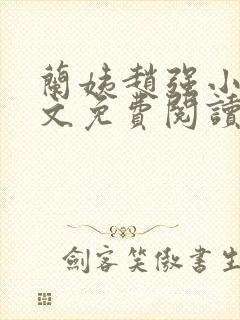 蘭姨趙强小
文免費閱讀
劍客笑傲書生